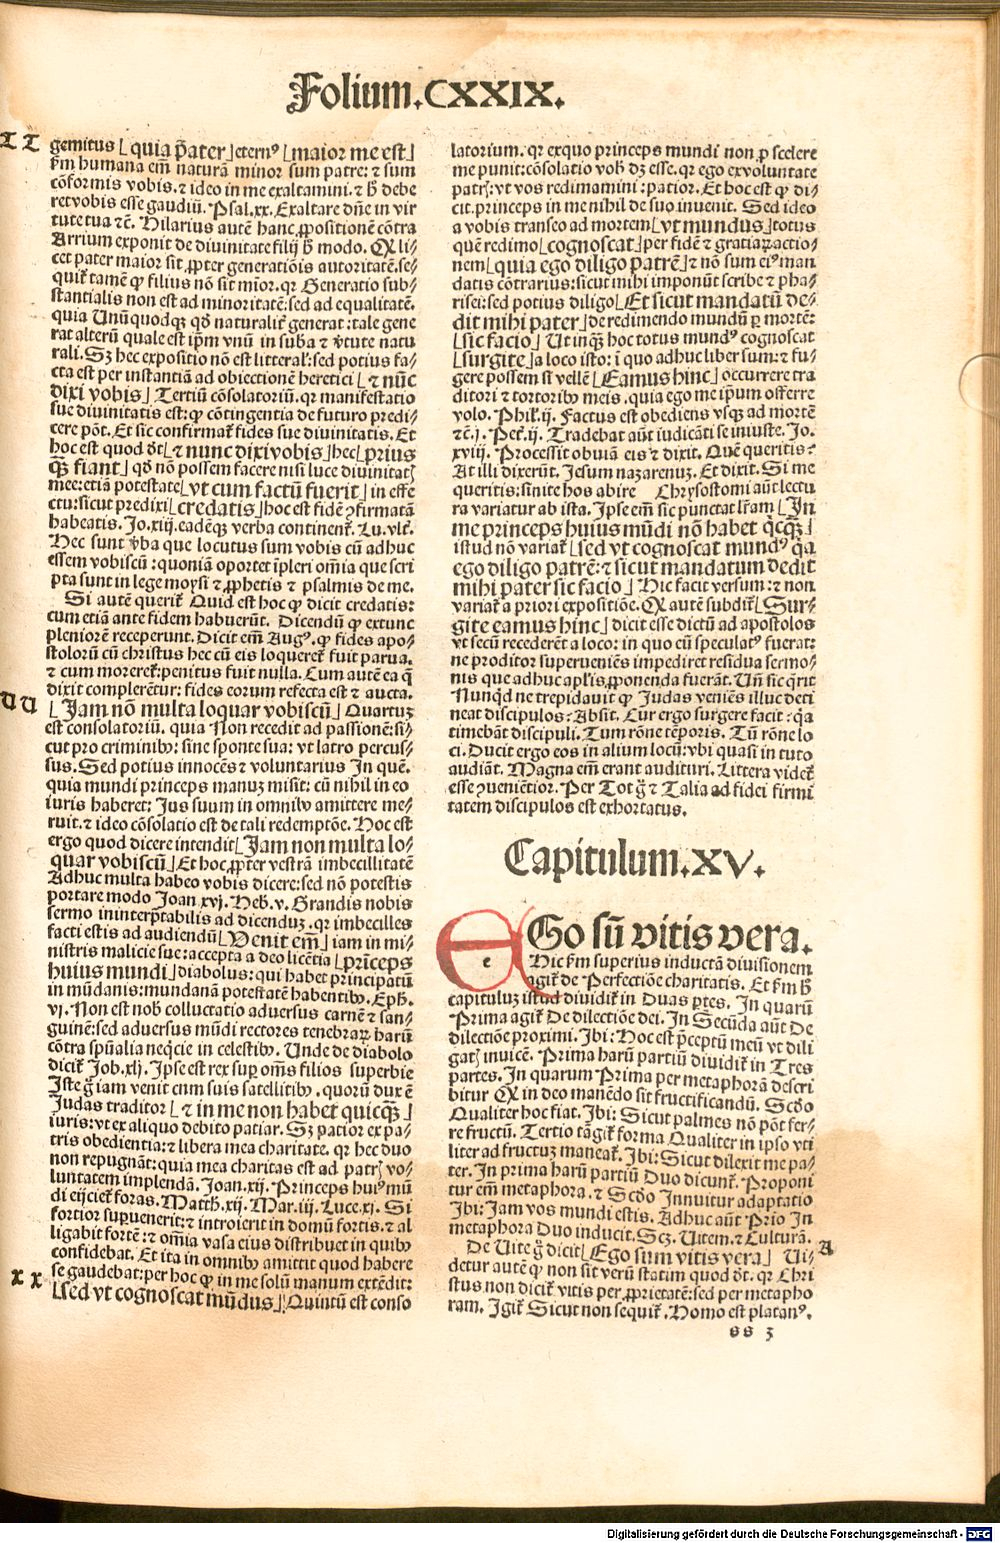 Folium.CXXIX.
T T
gemitus ⌊quia p̄ater⌋ eternꝰ ⌊maior me est⌋
k̄m humana em̄ naturā minor sum patre: ⁊ sum
cōformis vobis. ⁊ ideo in me exaltamini. ⁊ h̄ debe
ret vobis esse gaudiū. Psal.xx. Exaltare dn̄e in vir
tute tua ⁊c̄. Hilarius autē hanc ꝓpositionē cōtra
Arrium exponit de diuinitate filij h̄ modo. Q̈ li⸗
cet pater maior sit ꝓpter generatiōis autoritatē. se⸗
quit᷑ tamē ꝙ filius nō sit mior. qr Generatio sub⸗
stantialis non est ad minoritatē: sed ad equalitatē.
quia Unūquodqꝫ qd̄ naturalit᷑ generat: tale gene
rat alterū quale est ip̄m vnū in suba ⁊ v̄tute natu
rali. Sꝫ hec expositio nō est litteral̕: sed potius fa⸗
cta est per instantiā ad obiectionē heretici ⌊⁊ nūc
dixi vobis⌋ Tertiū cōsolatoriū. qr manifestatio
sue diuinitatis est: ꝙ cōtingentia de futuro predi⸗
cere pōt. Et sic confirmat᷑ fides sue diuinitatis. Et
hoc est quod d̄t ⌊⁊ nunc dixi vobis⌋ hec ⌊prius
qꝫ̄ fiant⌋ qd̄ nō possem facere nisi luce diuinitatꝭ
mee: etiā potestate ⌊vt cum factū fuerit⌋ in effe
ctu: sicut predixi ⌊credatis⌋ hoc est fidē ꝯfirmatā
habeatis. Jo.xiij. eadēqꝫ verba continent᷑. Lu.vlt̕.
Hec sunt v̄ba que locutus sum vobis cū adhuc
essem vobiscū: quoniā oportet īpleri oīa que scri
pta sunt in lege moysi ⁊ ꝓphetis ⁊ psalmis de me.
Si autē querit᷑ Quid est hoc ꝙ dicit credatis:
cum etiā ante fidem habuerūt. Dicendū ꝙ extunc
pleniorē receperunt. Dicit em̄ Augꝰ. ꝙ fides apo⸗
stolorū cū christus hec cū eis loqueret᷑ fuit parua.
⁊ cum moreret᷑: penitus fuit nulla. Cum autē ea q̄
dixit complerētur: fides eorum refecta est ⁊ aucta.
U U
⌊Jam nō multa loquar vobiscū⌋ Quartuꝫ
est consolatoriū. quia Non recedit ad passionē: si⸗
cut pro criminibꝰ: sine sponte sua: vt latro percus⸗
sus. Sed potius innocēs ⁊ voluntarius In quē.
quia mundi princeps manuꝫ misit: cū nihil in eo
iuris haberet: Jus suum in omnibꝰ amittere me⸗
ruit. ⁊ ideo cōsolatio est de tali redemptōe. Hoc est
ergo quod dicere intendit ⌊Jam non multa lo⸗
quar vobiscū⌋ Et hoc ꝓpter vestrā imbecillitatē
Adhuc multa habeo vobis dicere: sed nō potestis
portare modo Joan xvj. Heb.v. Grandis nobis
sermo ininterp̄tabilis ad dicenduꝫ. qr imbecilles
facti estis ad audiendū ⌊Venit em̄⌋ iam in mi⸗
nistris malicie sue: accepta a deo licētia ⌊prīceps
huius mundi⌋ diabolus: qui habet principatū
in mūdanis: mundanā potestatē habentibꝰ. Eph̄.
vj. Non est nob̄ colluctatio aduersus carnē ⁊ san⸗
guinē: sed aduersus mūdi rectores tenebraꝝ harū
cōtra spūalia neq̄cie in celestibꝰ. Unde de diabolo
dicit᷑ Job.xlj. Ipse est rex suꝑ om̄s filios superbie
Iste g̊ iam venit cum suis satellitibꝰ. quorū dux ē
Judas traditor ⌊⁊ in me non habet quicqꝫ̄⌋
iuris: vt ex aliquo debito patiar. Sꝫ patior ex pa⸗
tris obedientia: ⁊ libera mea charitate. qr hec duo
non repugnāt: quia mea charitas est ad patrꝭ vo⸗
luntatem implendā. Joan.xij. Princeps huiꝰ mū
di eijciet᷑ foras. Matth.xij. Mar.iij. Luce.xj. Si
fortior suꝑuenerit: ⁊ introierit in domū fortis. ⁊ al
ligabit fortē: ⁊ om̄ia vasa eius distribuet in quibꝰ
confidebat. Et ita in omnibꝰ amittit quod habere
x x
se gaudebat: per hoc ꝙ in me solū manum extēdit:
⌊sed vt cognoscat mūdus⌋ Quintū est conso
latorium. qr exquo princeps mundi non ꝓ scelere
me punit: cōsolatio vob̄ dꝫ esse. qr ego ex voluntate
patrꝭ: vt vos redimamini: patior. Et hoc est ꝙ di⸗
cit. princeps in me nihil de suo inuenit. Sed ideo
a vobis transeo ad mortem ⌊vt mundus⌋ totus
quē redimo ⌊cognoscat⌋ per fidē ⁊ gratiaꝝ actio⸗
nem ⌊quia ego diligo patrē⌋ ⁊ nō sum eiꝰ man
datis cōtrarius: sicut mihi imponūt scribe ⁊ pha⸗
risei: sed potius diligo ⌊Et sicut mandatū de⸗
dit mihi pater⌋ de redimendo mundū ꝑ mortē:
⌊sic facio⌋ Ut inqꝫ hoc totus mundꝰ cognoscat
⌊surgite⌋ a loco isto: ī quo adhuc liber sum: ⁊ fu⸗
gere possem si vellē ⌊Eamus hinc⌋ occurrere tra
ditori ⁊ tortoribꝰ meis. quia ego me ip̄um offerre
volo. Phil̕.ij. Factus est obediens vsqꝫ ad mortē
⁊c̄. j. Pet᷑.ij. Tradebat aūt iudicāti se iniuste. Jo.
xviij. Processit obuiā eis ⁊ dixit. Quē queritis?
At illi dixerūt. Jesum nazarenuꝫ. Et dixit. Si me
queritis: sinite hos abire Chrysostomi aūt lectu
ra variatur ab ista. Ipse em̄ sic punctat lr̄am ⌊In
me princeps huius mūdi nō habet qͥcqꝫ̄⌋
istud nō variat᷑ ⌊sed vt cognoscat mundꝰ qꝛ
ego diligo patrē: ⁊ sicut mandatum dedit
mihi pater sic facio⌋ Hic facit versum: ⁊ non
variat᷑ a priori expositiōe. Q̈ autē subdit᷑ ⌊Sur⸗
gite eamus hinc⌋ dicit esse dictū ad apostolos
vt secū recederēt a loco: in quo cū speculatꝰ fuerat:
ne proditor superueniēs impediret residua sermo⸗
nis que adhuc aplīs ꝓponenda fuerāt. Uñ sic q̄rit
Nunqͥd ne trepidauit ꝙ Judas veniēs illuc deci
neat discipulos? Absit. Cur ergo surgere facit: qꝛ
timebāt discipuli. Tum rōne tēporis. Tū rōne lo
ci. Ducit ergo eos in alium locū: vbi quasi in tuto
audiāt. Magna em̄ erant audituri. Littera videt᷑
esse ꝯuenietior. Per Tot g̊ ⁊ Talia ad fidei firmi
tatem discipulos est exhortatus.
Capitulum.XV.
EGo sū vitis vera.
e
Hic k̄m superius inductā diuisionem
agit᷑ de Perfectiōe charitatis. Et k̄m h̄
capituluꝫ istud diuidit᷑ in Duas ꝑtes. In quarū
Prima agit᷑ De dilectiōe dei. In Secūda aūt De
dilectiōe proximi. Ibi: Hoc est p̄ceptū meū vt dili
gatꝭ inuicē. Prima harū partiū diuidit᷑ in Tres
partes. In quarum Prima per metaphorā descri
bitur Q̈ in deo manēdo sit fructificandū. Scd̄o
Qualiter hoc fiat. Ibi: Sicut palmes nō pōt fer⸗
re fructū. Tertio tāgit᷑ forma Qualiter in ipso vti
liter ad fructuꝫ maneat᷑. Ibi: Sicut dilexit me pa⸗
ter. In prima harū partiū Duo dicunt᷑. Proponi
tur em̄ metaphora. ⁊ Scd̄o Innuitur adaptatio
Ibi: Jam vos mundi estis. Adhuc aūt Prio In
metaphora Duo inducit. Scꝫ. Uitem. ⁊ Culturā.
De Uite g̊ dicit ⌊Ego sum vitis vera⌋ Ui⸗
A
detur autē ꝙ non sit verū statim quod d̄t. qr Chri
stus non dicit᷑ vitis per ꝓprietatē: sed per metapho
ram. Igit᷑ Sicut non sequit᷑. Homo est platanꝰ.
ss 3
Digitalisierung gefördert durch die Deutsche Forschungsgemeinschaft - DFG